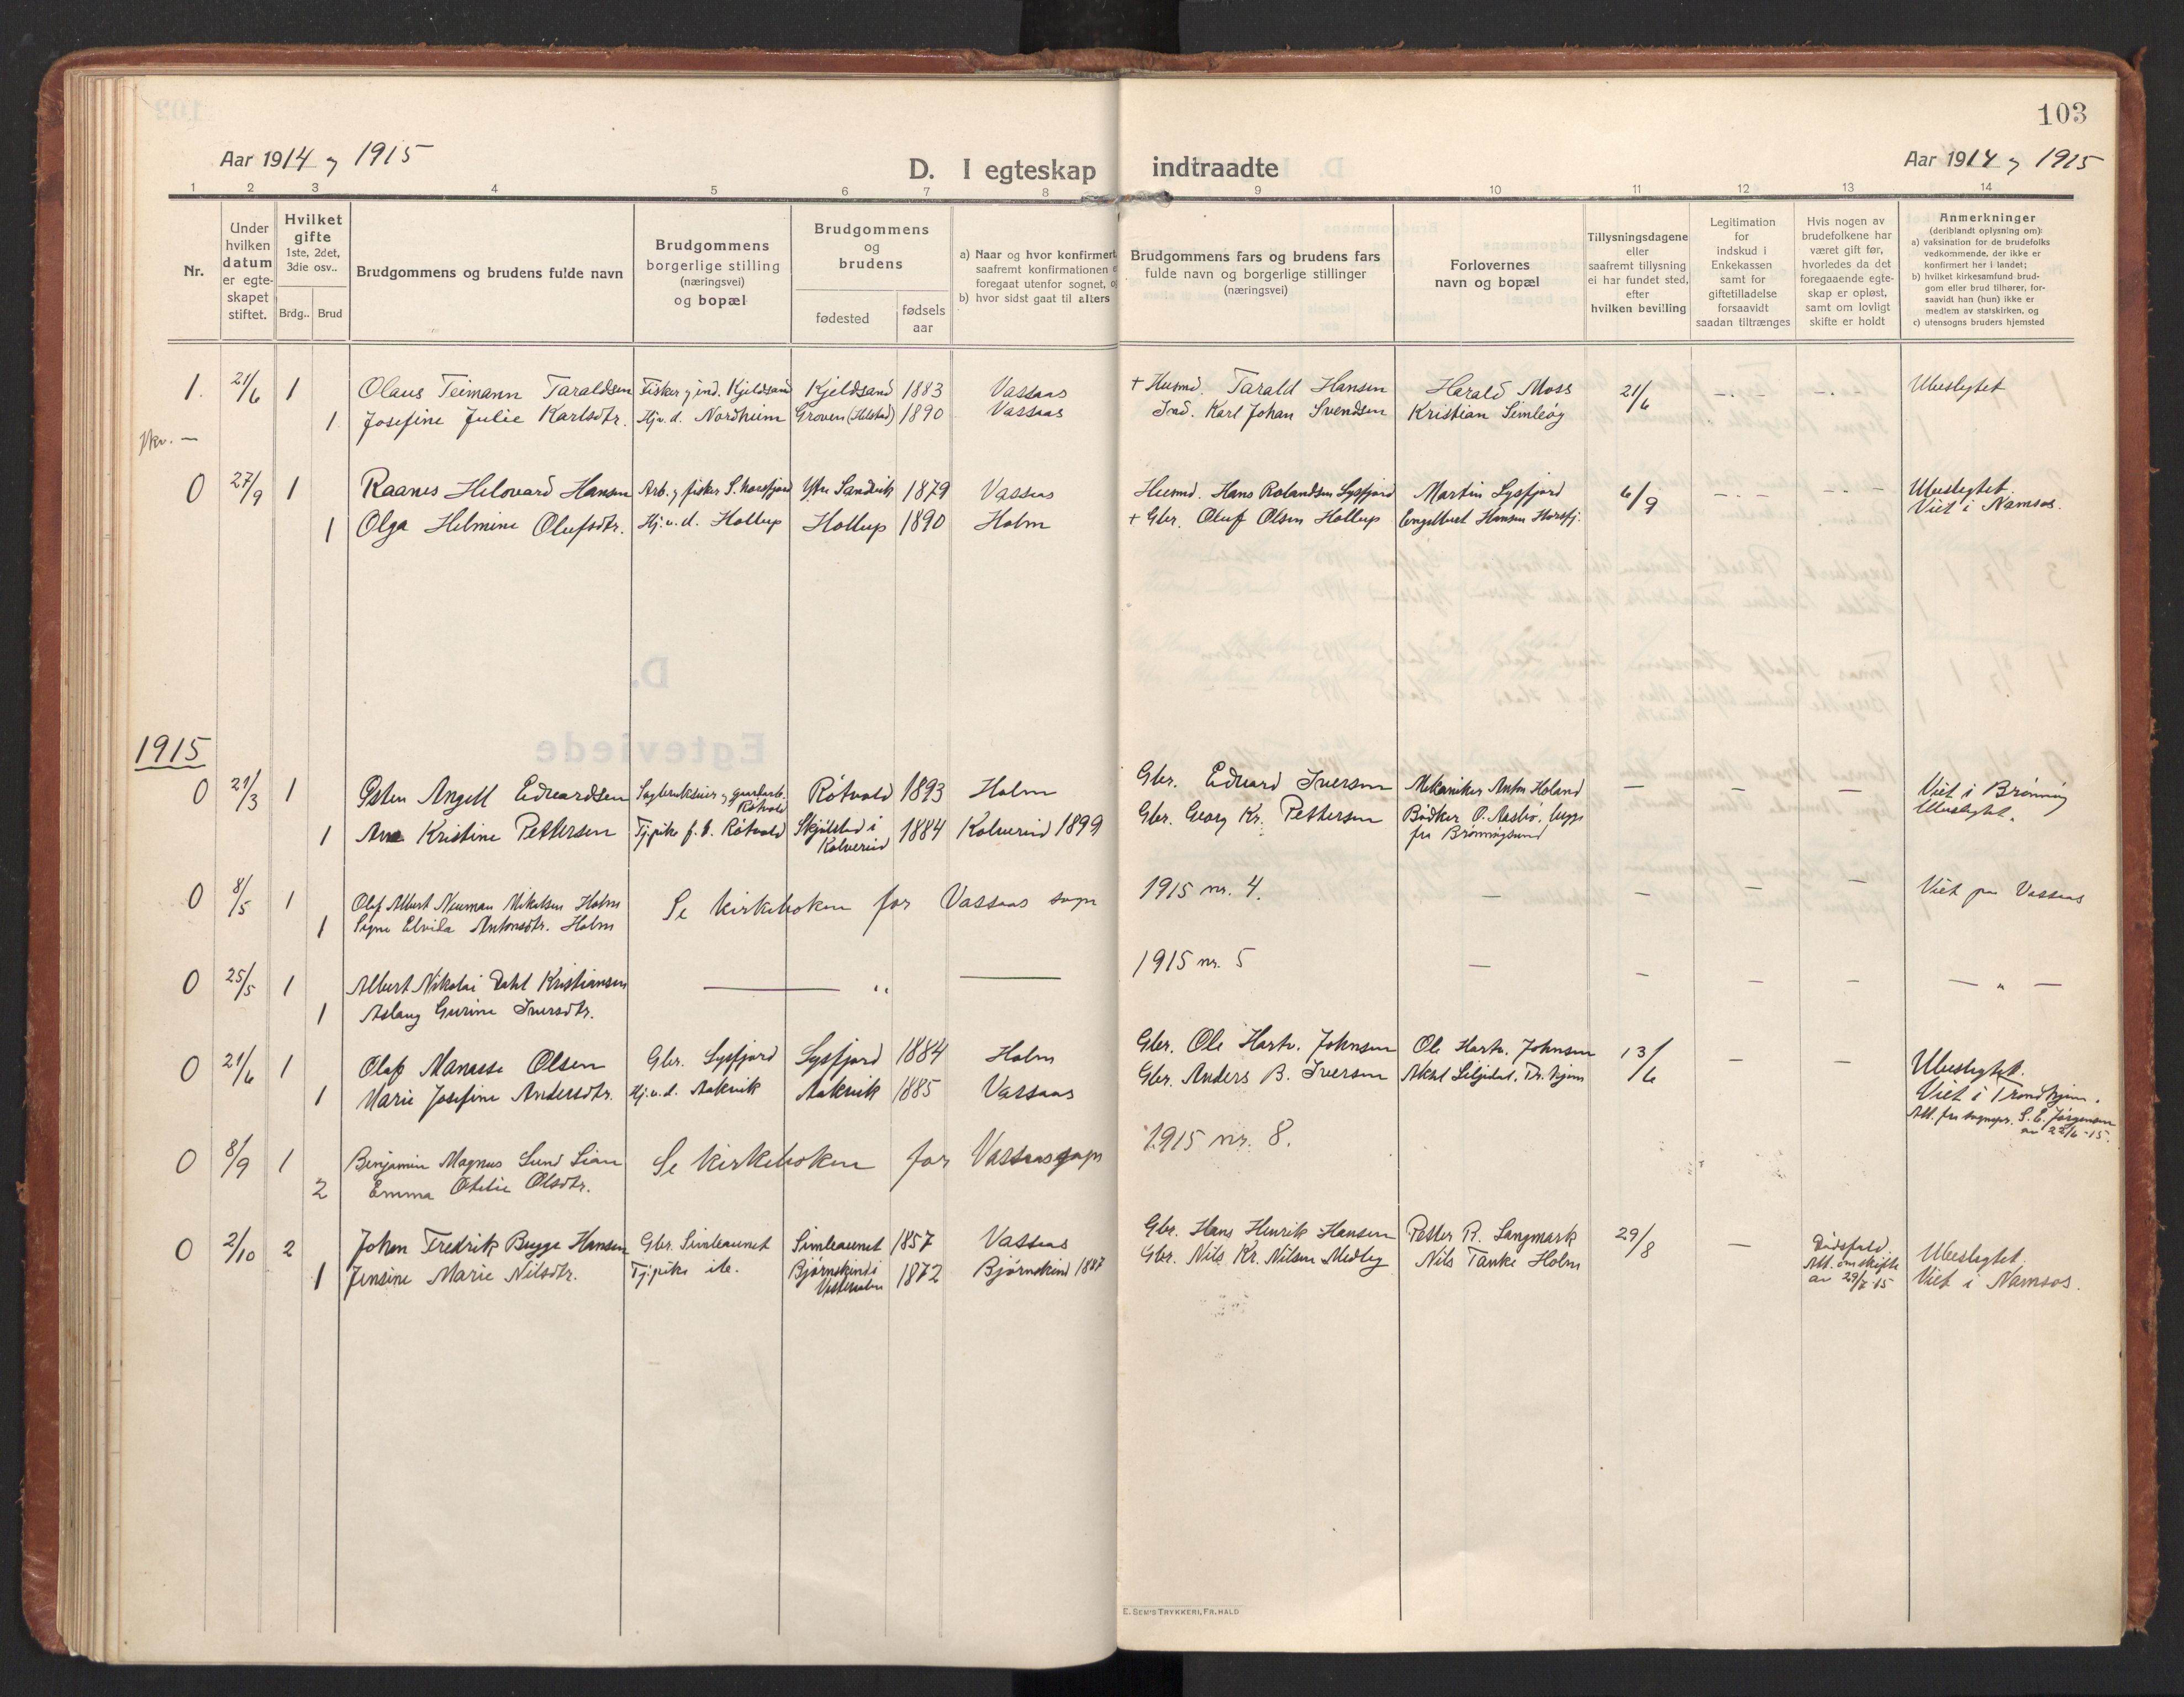 103
Aar 1914 og 1915
D. I egteskap indtraadte
Aar 1914 og 1915
1 2 3 4 5 6 7 8 9 10 11 12 13 14
Nr.
Under hvilken datum er egte-skapet stiftet.
Hvilket gifte
1ste, 2det, 3die osv..
Brdg.. Brud
Brudgommens og brudens fulde navn
Brudgommens borgerlige stilling (næringsvei) og bopæl
Brudgommens og brudens
fødested
fødsels aar
a) Naar og hvor konfirmert
saafremt konfirmationen
foregaat utenfor sognet,
b) hvor sidst gaat til alters
Brudgommens fars og brudens fars
fulde navn og borgerlige stillinger
(næringsvei)
Forlovernes
navn og bopæl
Tillysningsdagene
eller
saafremt tillysning
ei har fundet sted,
efter
hvilken bevilling
Legitimation
for
indskud i
Enkekassen
samt for
giftetilladelse
forsaavidt
saadan tiltrænges
Hvis nogen av
brudefolkene har
været gift før,
hvorledes da det
foregaaende egte-
skap er opløst,
samt om lovligt
skifte er holdt
Anmerkninger
(deriblandt oplysning om):
a) vaksination for de brudefolks
vedkommende, der ikke er
konfirmert her i landet;
b) hvilket kirkesamfund brud-
gom eller brud tilhører, for-
saavidt han (hun) ikke er
medlem av statskirken, og
c) utensogns bruders hjemsted
1. 21/6 1 Olaus Teimann Taraldsen Fisker og ind. Kjeldsand Kjeldsand 1883 Vassaas + Husmd. Tarald Hansen Harald Moss 21/6 —.— —.— Ubeslegtet
1 Josefine Julie Karlsdtr. Hj.v.d. Nordheim Groven (Helstad) 1890 Vassaas Ind. Karl Johan Svendsen Kristian Simleog
0 27/9 1 Raanes Hilovard Hansen Arb. og fisker S. Horsfjord Ytre Sandvik 1879 Vassaas Husmd. Hans Rolandsen Lysfjord Martin Lysfjord 6/9 —.— —.— Ubeslegtet.
Viet i Namsos.
1 Olga Helmine Olufsdtr. Hj.v.d. Hollup Hollup 1890 Holm + Gbr. Oluf Olsen Hollup Engelbert Hansen Horsfj.
1915
0 21/3 1 Østen Angell Edvardsen Sagbrukseier og gaardarb. Røtvold Røtvold 1893 Holm Gbr. Edvard Iversen Mekaniker Anton Holand — — — Viet i Brønnøy
Ubeslegtet.
1 Ane Kristine Pettersen Tj.pike f.t. Røtvold Skjølstad i Kolvereid 1884 Kolvereid 1899 Gbr. Georg Kr. Pettersen Bødker O. Aasbø,
fra Brønnøysund
0 8/5 1 Olaf Albert Neuman Nikolsen Holm Se kirkeboken for Vassaas sogn 1915 nr. 4. — — — — Viet paa Vassaas
1 Signe Elvila Antonsdtr. Holm
0 25/5 1 Albert Nikolai Dahl Kristiansen — „ — 1915 nr. 5 — — — — — „ —
1 Aslaug Gurine Iversdtr.
0 21/6 1 Olaf Manasse Olsen Gbr. Lysfjord Lysfjord 1884 Holm Gbr. Ole Hartv. Johnsen Ole Hartv. Johnsen 13/6 — — Ubeslegtet.
1 Marie Josefine Andersdtr. Hj.v.d. Aakvik Aakvik 1885 Vassaas Gbr. Anders B. Iversen Aksel Liljedal, Tr.hjem Viet i Trondhjem.
Att. fra sognepr. S. E. Jørgensen
av 22/6-15.
0 8/9 1 Benjamin Magnus Lund Lian Se kirkeboken for Vassaas sogn 1915 nr. 8.
2 Emma Otelie Olsdtr.
0 2/10 2 Johan Fredrik Bugge Hansen Gbr. Simleaunet Simleaunet 1857 Vassaas Gbr. Hans Henrik Hansen Petter R. Langmark 29/8 — Dødsfald.
Att. om skifte
av 29/7 15 Ubeslegtet.
1 Jensine Marie Nilsdtr. Tj.pike ib. Bjørnskind i Vesteraalen 1872 Bjørnskind 1887 Gbr. Nils Kr. Nilsen Medby Nils Tanke Holm Viet i Namsos.
E. SEM'S TRYKKERI, FR.HALD